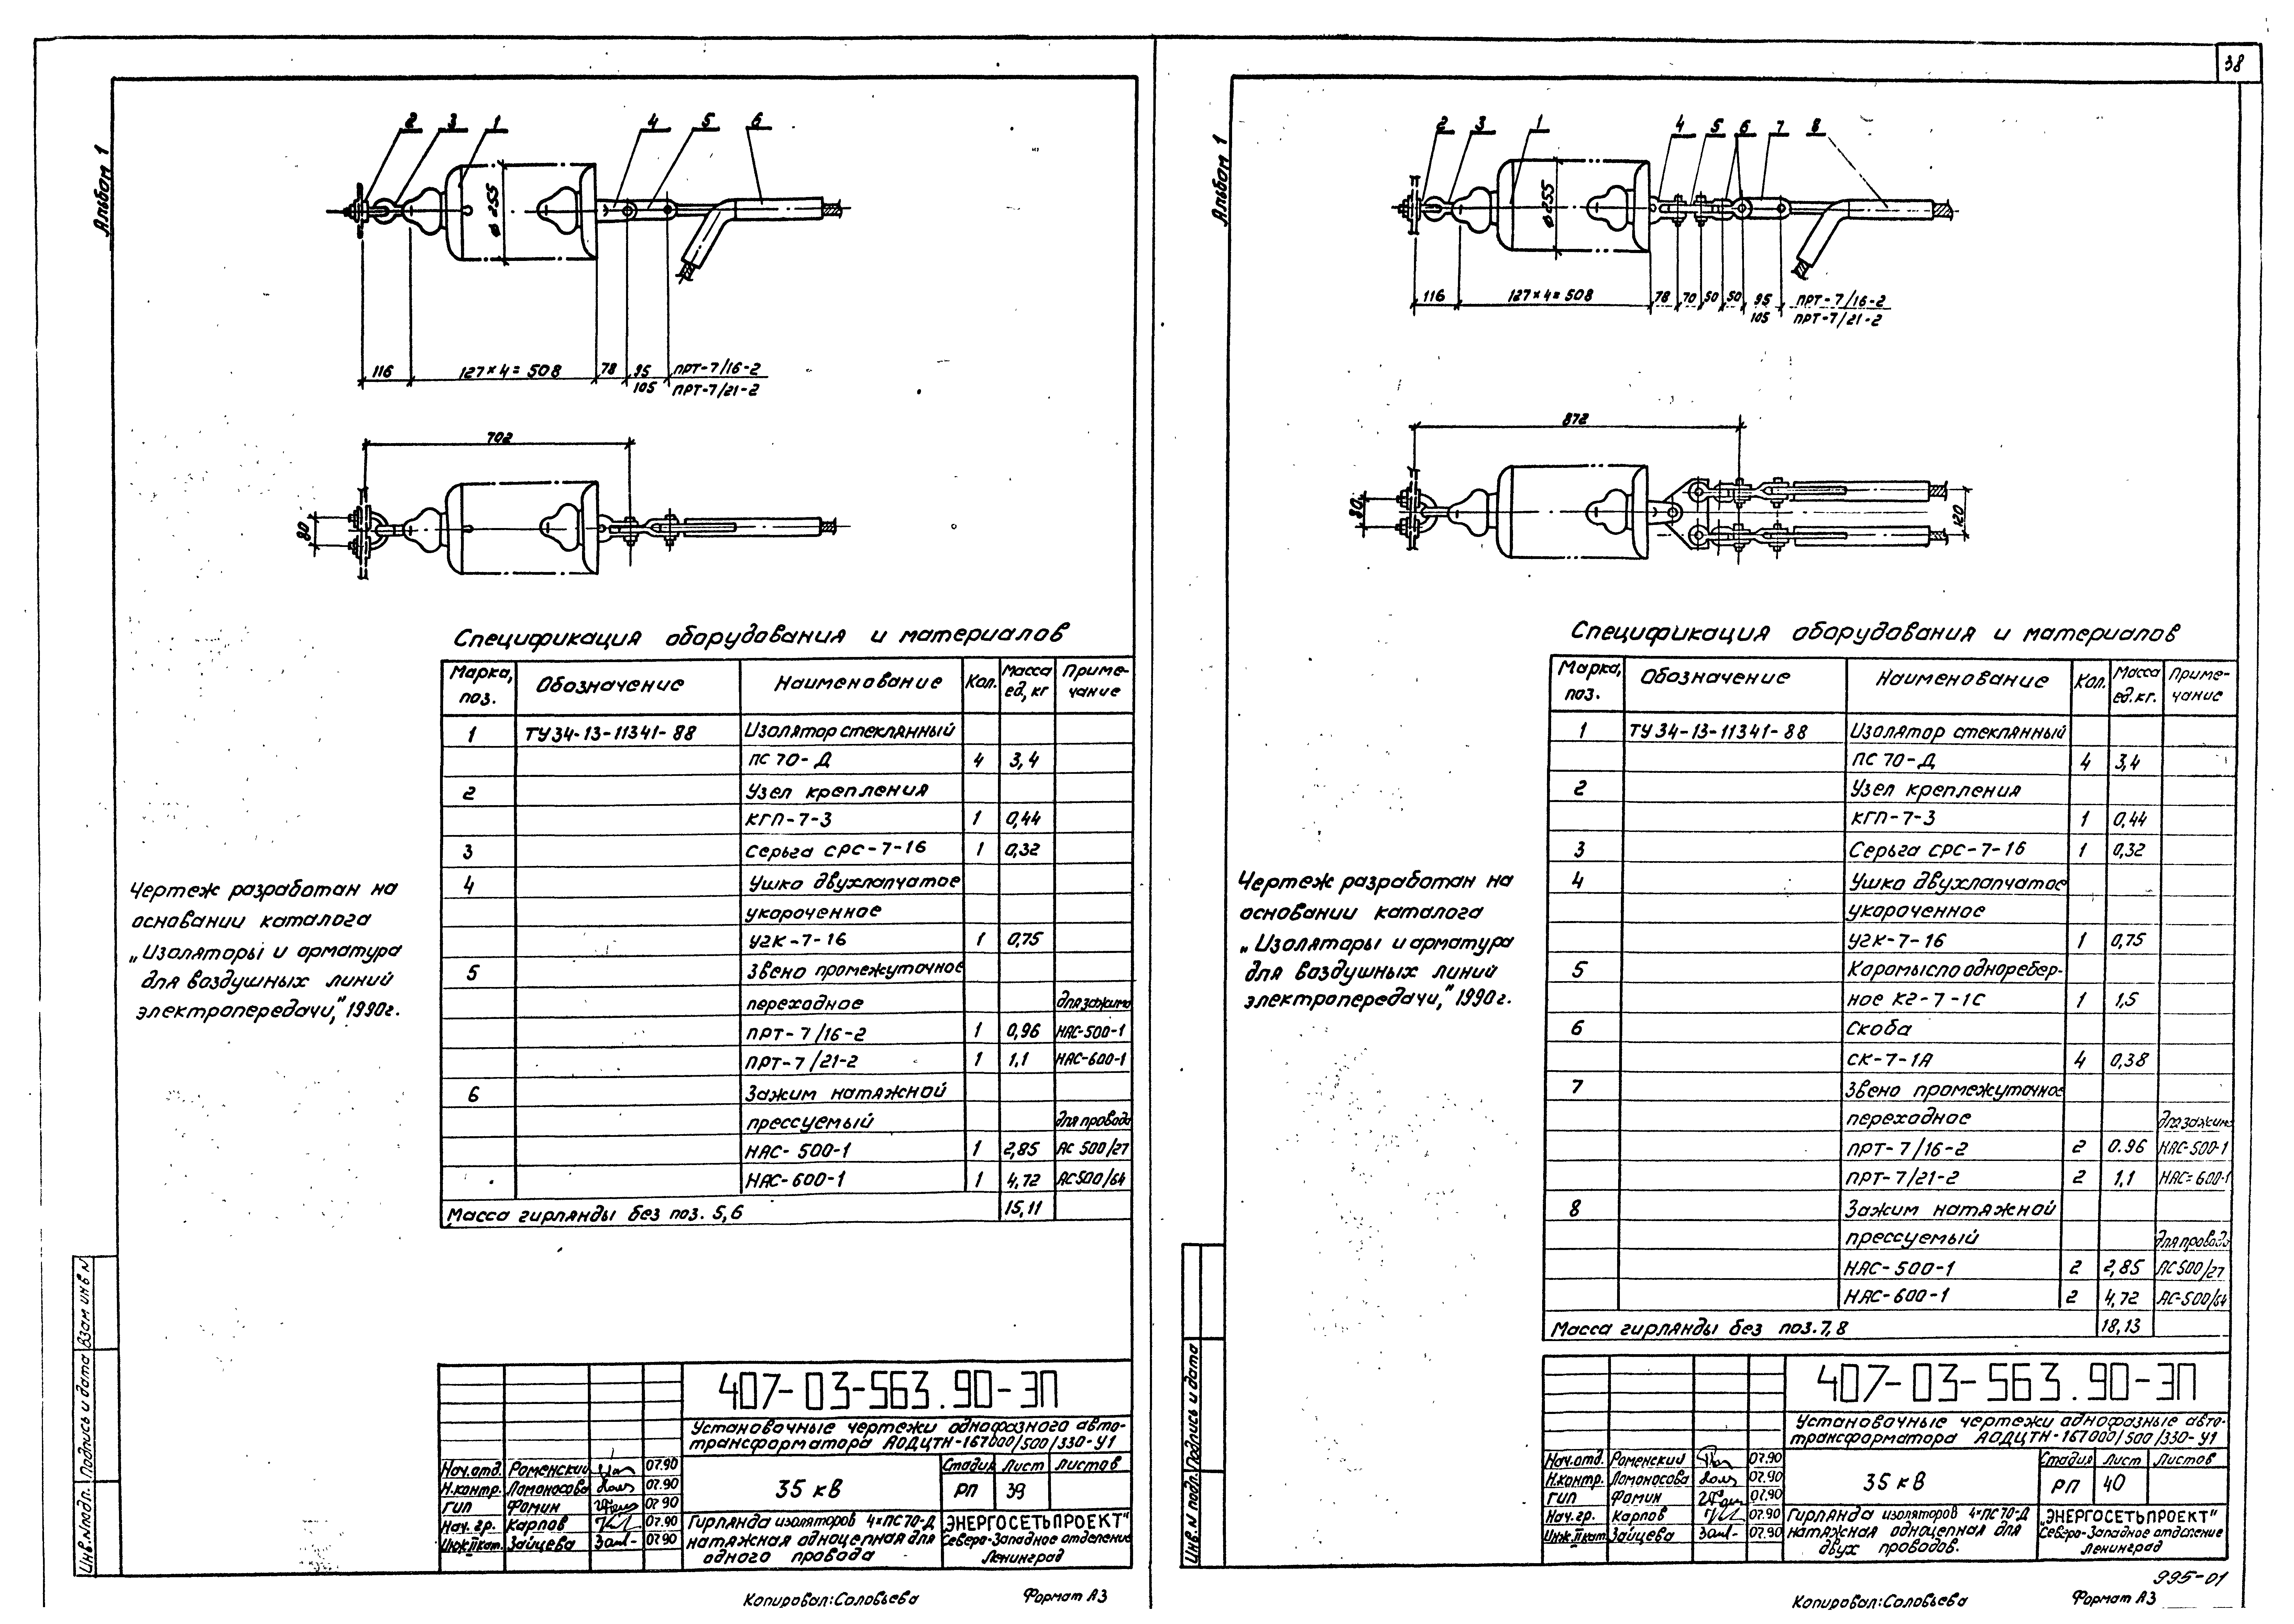 38
Альбом 1
2 3 1 4 5 6
ø 255
116 127×4=508 78 95 ПРТ-7/16-2
105 ПРТ-7/21-2
702
80
Спецификация оборудования и материалов
Марка, поз. Обозначение Наименование Кол. Масса ед, кг Приме-чание
1 ТУ34-13-11341-88 Изолятор стеклянный
ПС 70-Д 4 3,4
2 Узел крепления
КГП-7-3 1 0,44
3 Серьга СРС-7-16 1 0,32
4 Ушко двухлапчатое
укороченное
У2К-7-16 1 0,75
5 Звено промежуточное
переходное для зажима
ПРТ-7/16-2 1 0,96 НАС-500-1
ПРТ-7/21-2 1 1,1 НАС-600-1
6 Зажим натяжной
прессуемый для провода
НАС-500-1 1 2,85 АС 500/27
НАС-600-1 1 4,72 АС500/64
Масса гирлянды без поз. 5,6 15,11
Чертеж разработан на
основании каталога
„Изоляторы и арматура
для воздушных линий
электропередачи," 1990г.
Инв.N подл. Подпись и дата Взам инв N
407-03-563.90-ЭП
Установочные чертежи однофазного авто-
трансформатора АОДЦТН-167000/500/330-У1
Нач.отд. Роменский 07.90
Н.контр. Ломоносова 07.90
ГИП Фомин 07.90
Нач. гр. Карпов 07.90
Инж.II кат. Зайцева 07.90
35 кВ
Стадия Лист Листов
РП 39
Гирлянда изоляторов 4×ПС70-Д
натяжная одноцепная для
одного провода
ЭНЕРГОСЕТЬПРОЕКТ"
Северо-Западное отделение
Ленинград
Копировал: Соловьева Формат А3
Альбом 1
2 3 1 4 5 6 7 8
ø255
116 127×4=508 78 70 50 50 95 ПРТ-7/16-2
105 ПРТ-7/21-2
872
80
120
Спецификация оборудования и материалов
Марка, поз. Обозначение Наименование Кол. Масса ед.кг. Приме-чание
1 ТУ34-13-11341-88 Изолятор стеклянный
ПС 70-Д 4 3,4
2 Узел крепления
КГП-7-3 1 0,44
3 Серьга СРС-7-16 1 0,32
4 Ушко двухлапчатое
укороченное
У2К-7-16 1 0,75
5 Коромысло одноребер-
ное К2-7-1С 1 1,5
6 Скоба
СК-7-1А 4 0,38
7 Звено промежуточное
переходное для зажима
ПРТ-7/16-2 2 0.96 НАС-500-1
ПРТ-7/21-2 2 1,1 НАС-600-1
8 Зажим натяжной
прессуемый для провода
НАС-500-1 2 2,85 АС500/27
НАС-600-1 2 4,72 АС-500/64
Масса гирлянды без поз.7,8 18,13
Чертеж разработан на
основании каталога
„Изоляторы и арматура
для воздушных линий
электропередачи," 1990г.
Инв.N подл. Подпись и дата
407-03-563.90-ЭП
Установочные чертежи однофазные авто-
трансформатора АОДЦТН-167000/500/330-У1
Нач.отд. Роменский 07.90
Н.контр. Ломоносова 07.90
ГИП Фомин 07.90
Нач.гр. Карпов 07.90
Инж.II кат. Зайцева 07.90
35 кВ
Стадия Лист Листов
РП 40
Гирлянда изоляторов 4×ПС70-Д
натяжная одноцепная для
двух проводов.
„ЭНЕРГОСЕТЬПРОЕКТ"
Северо-Западное отделение
Ленинград
995-01
Копировал: Соловьева Формат А3